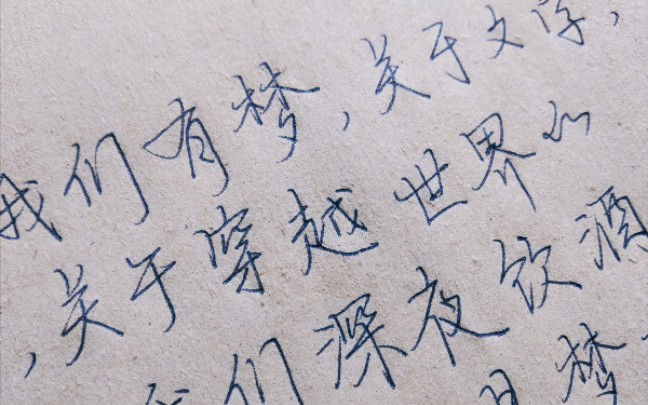 我们有梦,关于文学,
,关于穿越世界的
们深夜饮酒
梦